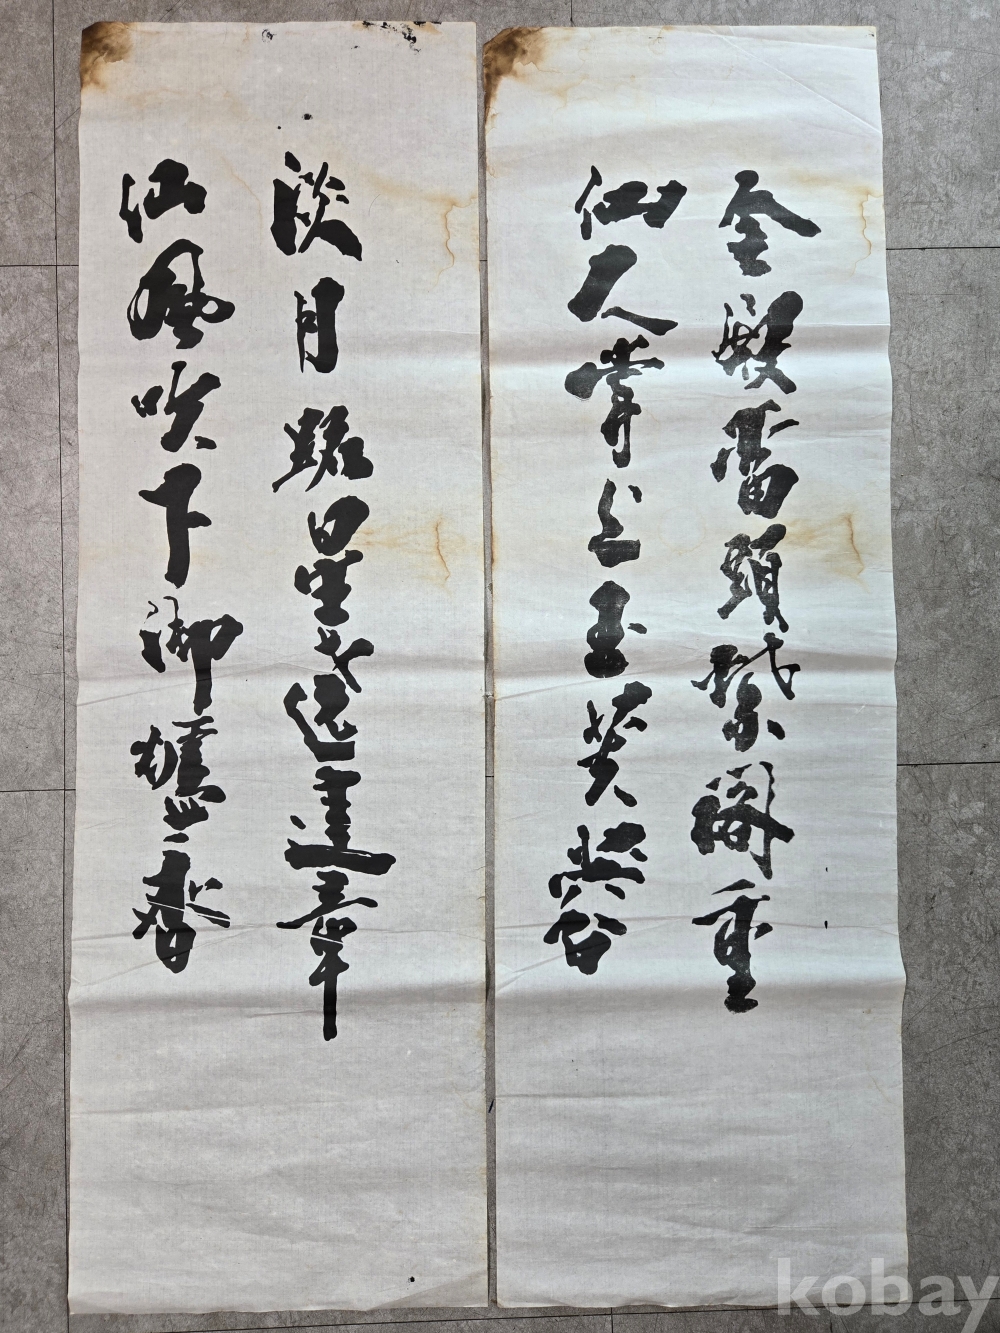 金殿當頭紫閣重
仙人掌上玉芙蓉
淡月疎星遶建章
仙風吹下御爐香
kobay